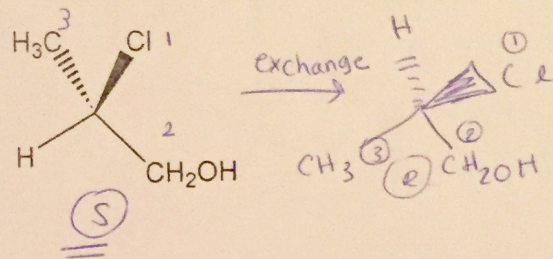 H₃C 3 Cl 1
H 2 CH₂OH
S
exchange
H
① Cl
CH₃ ③ ② CH₂OH
R